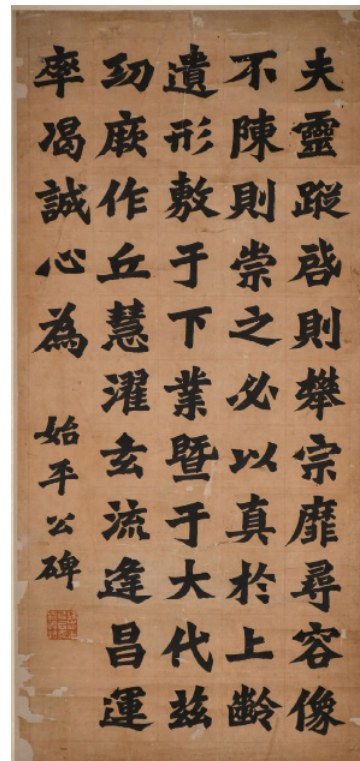 夫靈蹤啓則攀宗靡尋容像
不陳則崇之必以真於上齡
遺形敷于下業暨于大代茲
功厥作丘慧濯玄流逢昌運
率渴誠心為
始平公碑